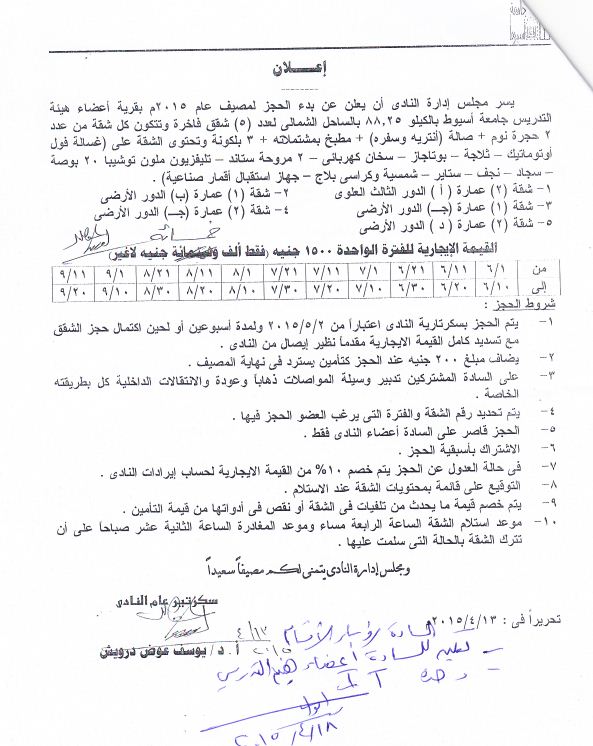 إعـــلان
يسر مجلس إدارة النادى أن يعلن عن بدء الحجز لمصيف عام ٢٠١٥م بقرية أعضاء هيئة
التدريس جامعة أسيوط بالكيلو ٨٨,٢٥ بالساحل الشمالى لعدد (٥) شقق فاخرة وتتكون كل شقة من عدد
٢ حجرة نوم + صالة (أنتريه وسفره) + مطبخ بمشتملاته + ٣ بلكونة وتحتوى الشقة على (غسالة فول
أوتوماتيك – ثلاجة – بوتاجاز – سخان كهربائى – ٢ مروحة ستاند – تليفزيون ملون توشيبا ٢٠ بوصة
– سجاد – نجف – ستاير – شمسية وكراسى بلاج – جهاز استقبال أقمار صناعية) .
١- شقة (٢) عمارة (أ) الدور الثالث العلوى ٢- شقة (١) عمارة (ب) الدور الأرضى
٣- شقة (١) عمارة (جـ) الدور الأرضى ٤- شقة (٢) عمارة (جـ) الدور الأرضى
٥- شقة (٢) عمارة (د) الدور الأرضى
خمسمائة
القيمة الإيجارية للفترة الواحدة ١٥٠٠ جنيه (فقط ألف وستمائة جنيه لاغير)
من ٦/١ ٦/١١ ٦/٢١ ٧/١ ٧/١١ ٧/٢١ ٨/١ ٨/١١ ٨/٢١ ٩/١ ٩/١١
إلى ٦/١٠ ٦/٢٠ ٦/٣٠ ٧/١٠ ٧/٢٠ ٧/٣٠ ٨/١٠ ٨/٢٠ ٨/٣٠ ٩/١٠ ٩/٢٠
شروط الحجز :
١- يتم الحجز بسكرتارية النادى اعتباراً من ٢٠١٥/٥/٢ ولمدة أسبوعين أو لحين اكتمال حجز الشقق
مع تسديد كامل القيمة الايجارية مقدماً نظير إيصال من النادى .
٢- يضاف مبلغ ٢٠٠ جنيه عند الحجز كتأمين يسترد فى نهاية المصيف .
٣- على السادة المشتركين تدبير وسيلة المواصلات ذهاباً وعودة والانتقالات الداخلية كل بطريقته
الخاصة .
٤- يتم تحديد رقم الشقة والفترة التى يرغب العضو الحجز فيها .
٥- الحجز قاصر على السادة أعضاء النادى فقط .
٦- الاشتراك بأسبقية الحجز .
٧- فى حالة العدول عن الحجز يتم خصم ١٠% من القيمة الايجارية لحساب إيرادات النادى .
٨- التوقيع على قائمة بمحتويات الشقة عند الاستلام .
٩- يتم خصم قيمة ما يحدث من تلفيات فى الشقة أو نقص فى أدواتها من قيمة التأمين .
١٠- موعد استلام الشقة الساعة الرابعة مساء وموعد المغادرة الساعة الثانية عشر صباحاً على أن
تترك الشقة بالحالة التى سلمت عليها .
ومجلس إدارة النادى يتمنى لكم مصيفاً سعيداً
سكرتير عام النادى
تحريراً فى : ٢٠١٥/٤/١٣
٤/١٣
٢٠١٥
السادة رؤساء الأقسام
أ.د/ يوسف عوض درويش
السادة أعضاء هيئة التدريس
٢٠١٥/٤/١٨